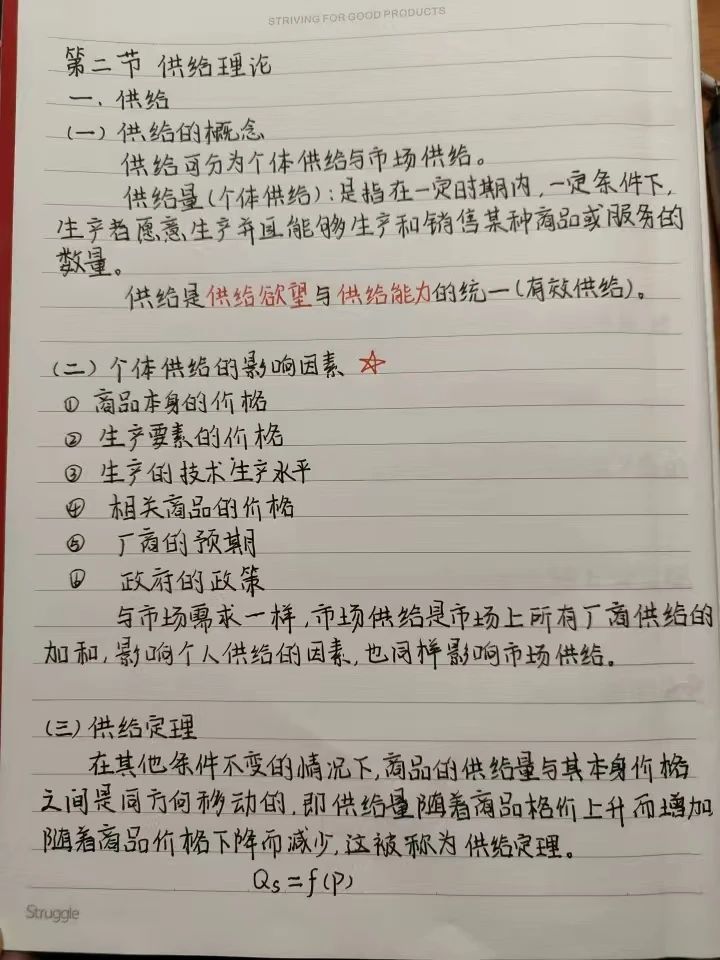 STRIVING FOR GOOD PRODUCTS
第二节 供给理论
一、供给
(一)供给的概念
供给可分为个体供给与市场供给。
供给量(个体供给):是指在一定时期内,一定条件下,
生产者愿意生产并且能够生产和销售某种商品或服务的
数量。
供给是供给欲望与供给能力的统一(有效供给)。
(二)个体供给的影响因素 ☆
① 商品本身的价格
② 生产要素的价格
③ 生产的技术生产水平
④ 相关商品的价格
⑤ 厂商的预期
⑥ 政府的政策
与市场需求一样,市场供给是市场上所有厂商供给的
加和,影响个人供给的因素,也同样影响市场供给。
(三)供给定理
在其他条件不变的情况下,商品的供给量与其本身价格
之间是同方向移动的,即供给量随着商品格价上升而增加
随着商品价格下降而减少,这被称为供给定理。
Qs=f(P)
Struggle